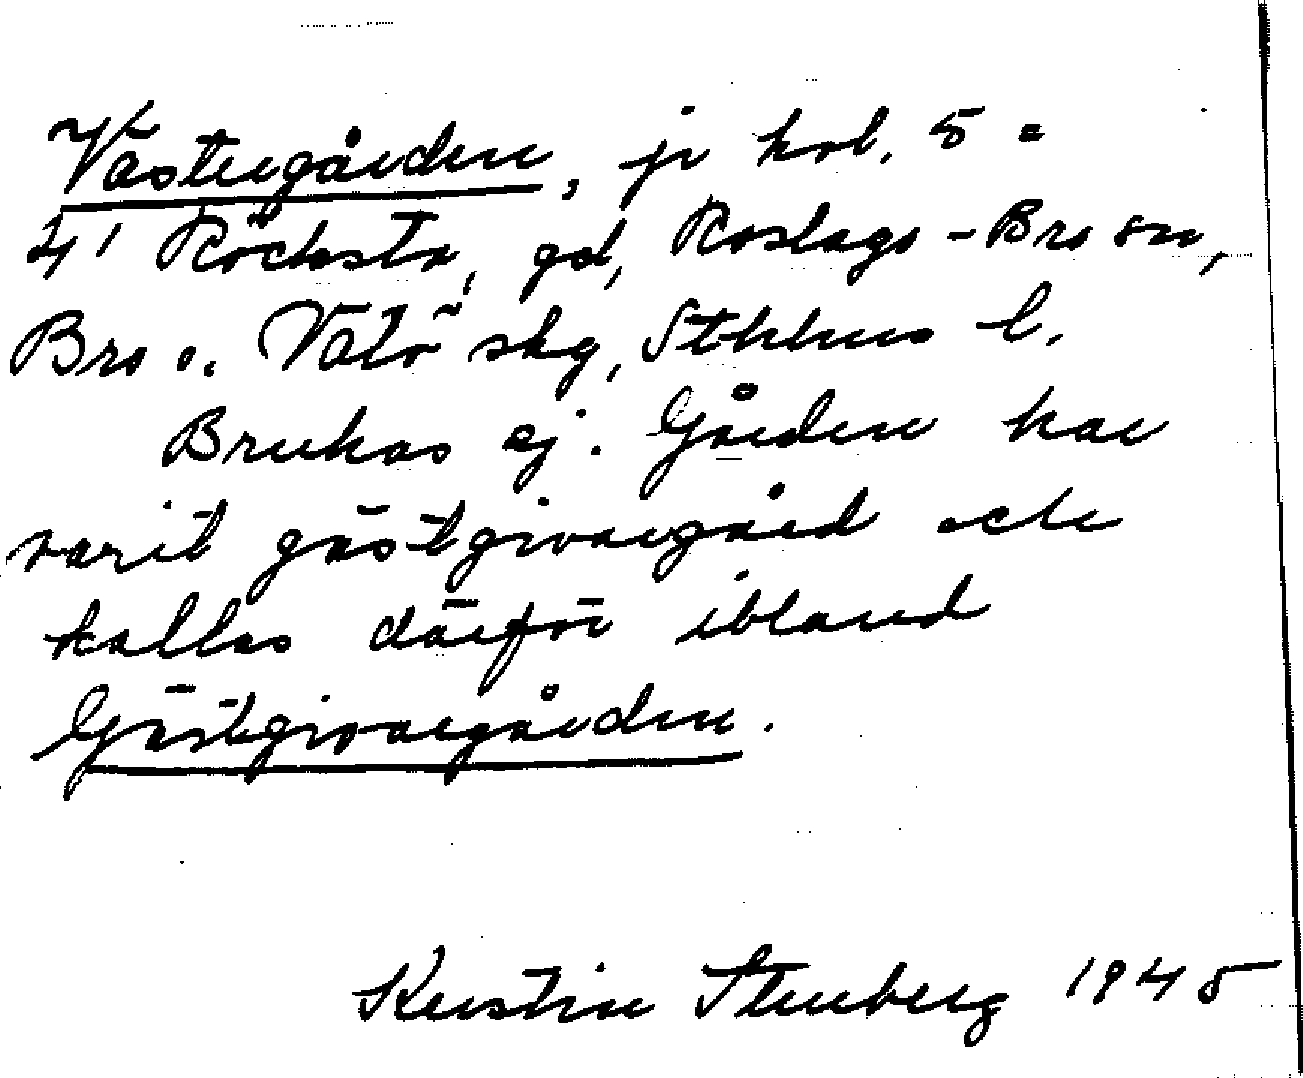 Västergården, jr hbl. 5 =
4¹ Röcksta, gd, Roslags-Bro sn,
Bro o. Vätö skg, Sthlms l.
Brukas ej. Gården har
varit gästgivaregård och
kallas därför ibland
Gästgivaregården.
Kerstin Stenberg 1945